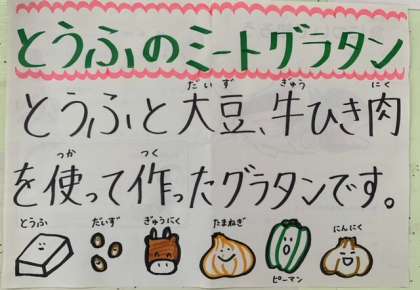 とうふのミートグラタン
とうふと大豆、牛ひき肉
を使って作ったグラタンです。
とうふ だいず ぎゅうにく たまねぎ ピーマン にんにく